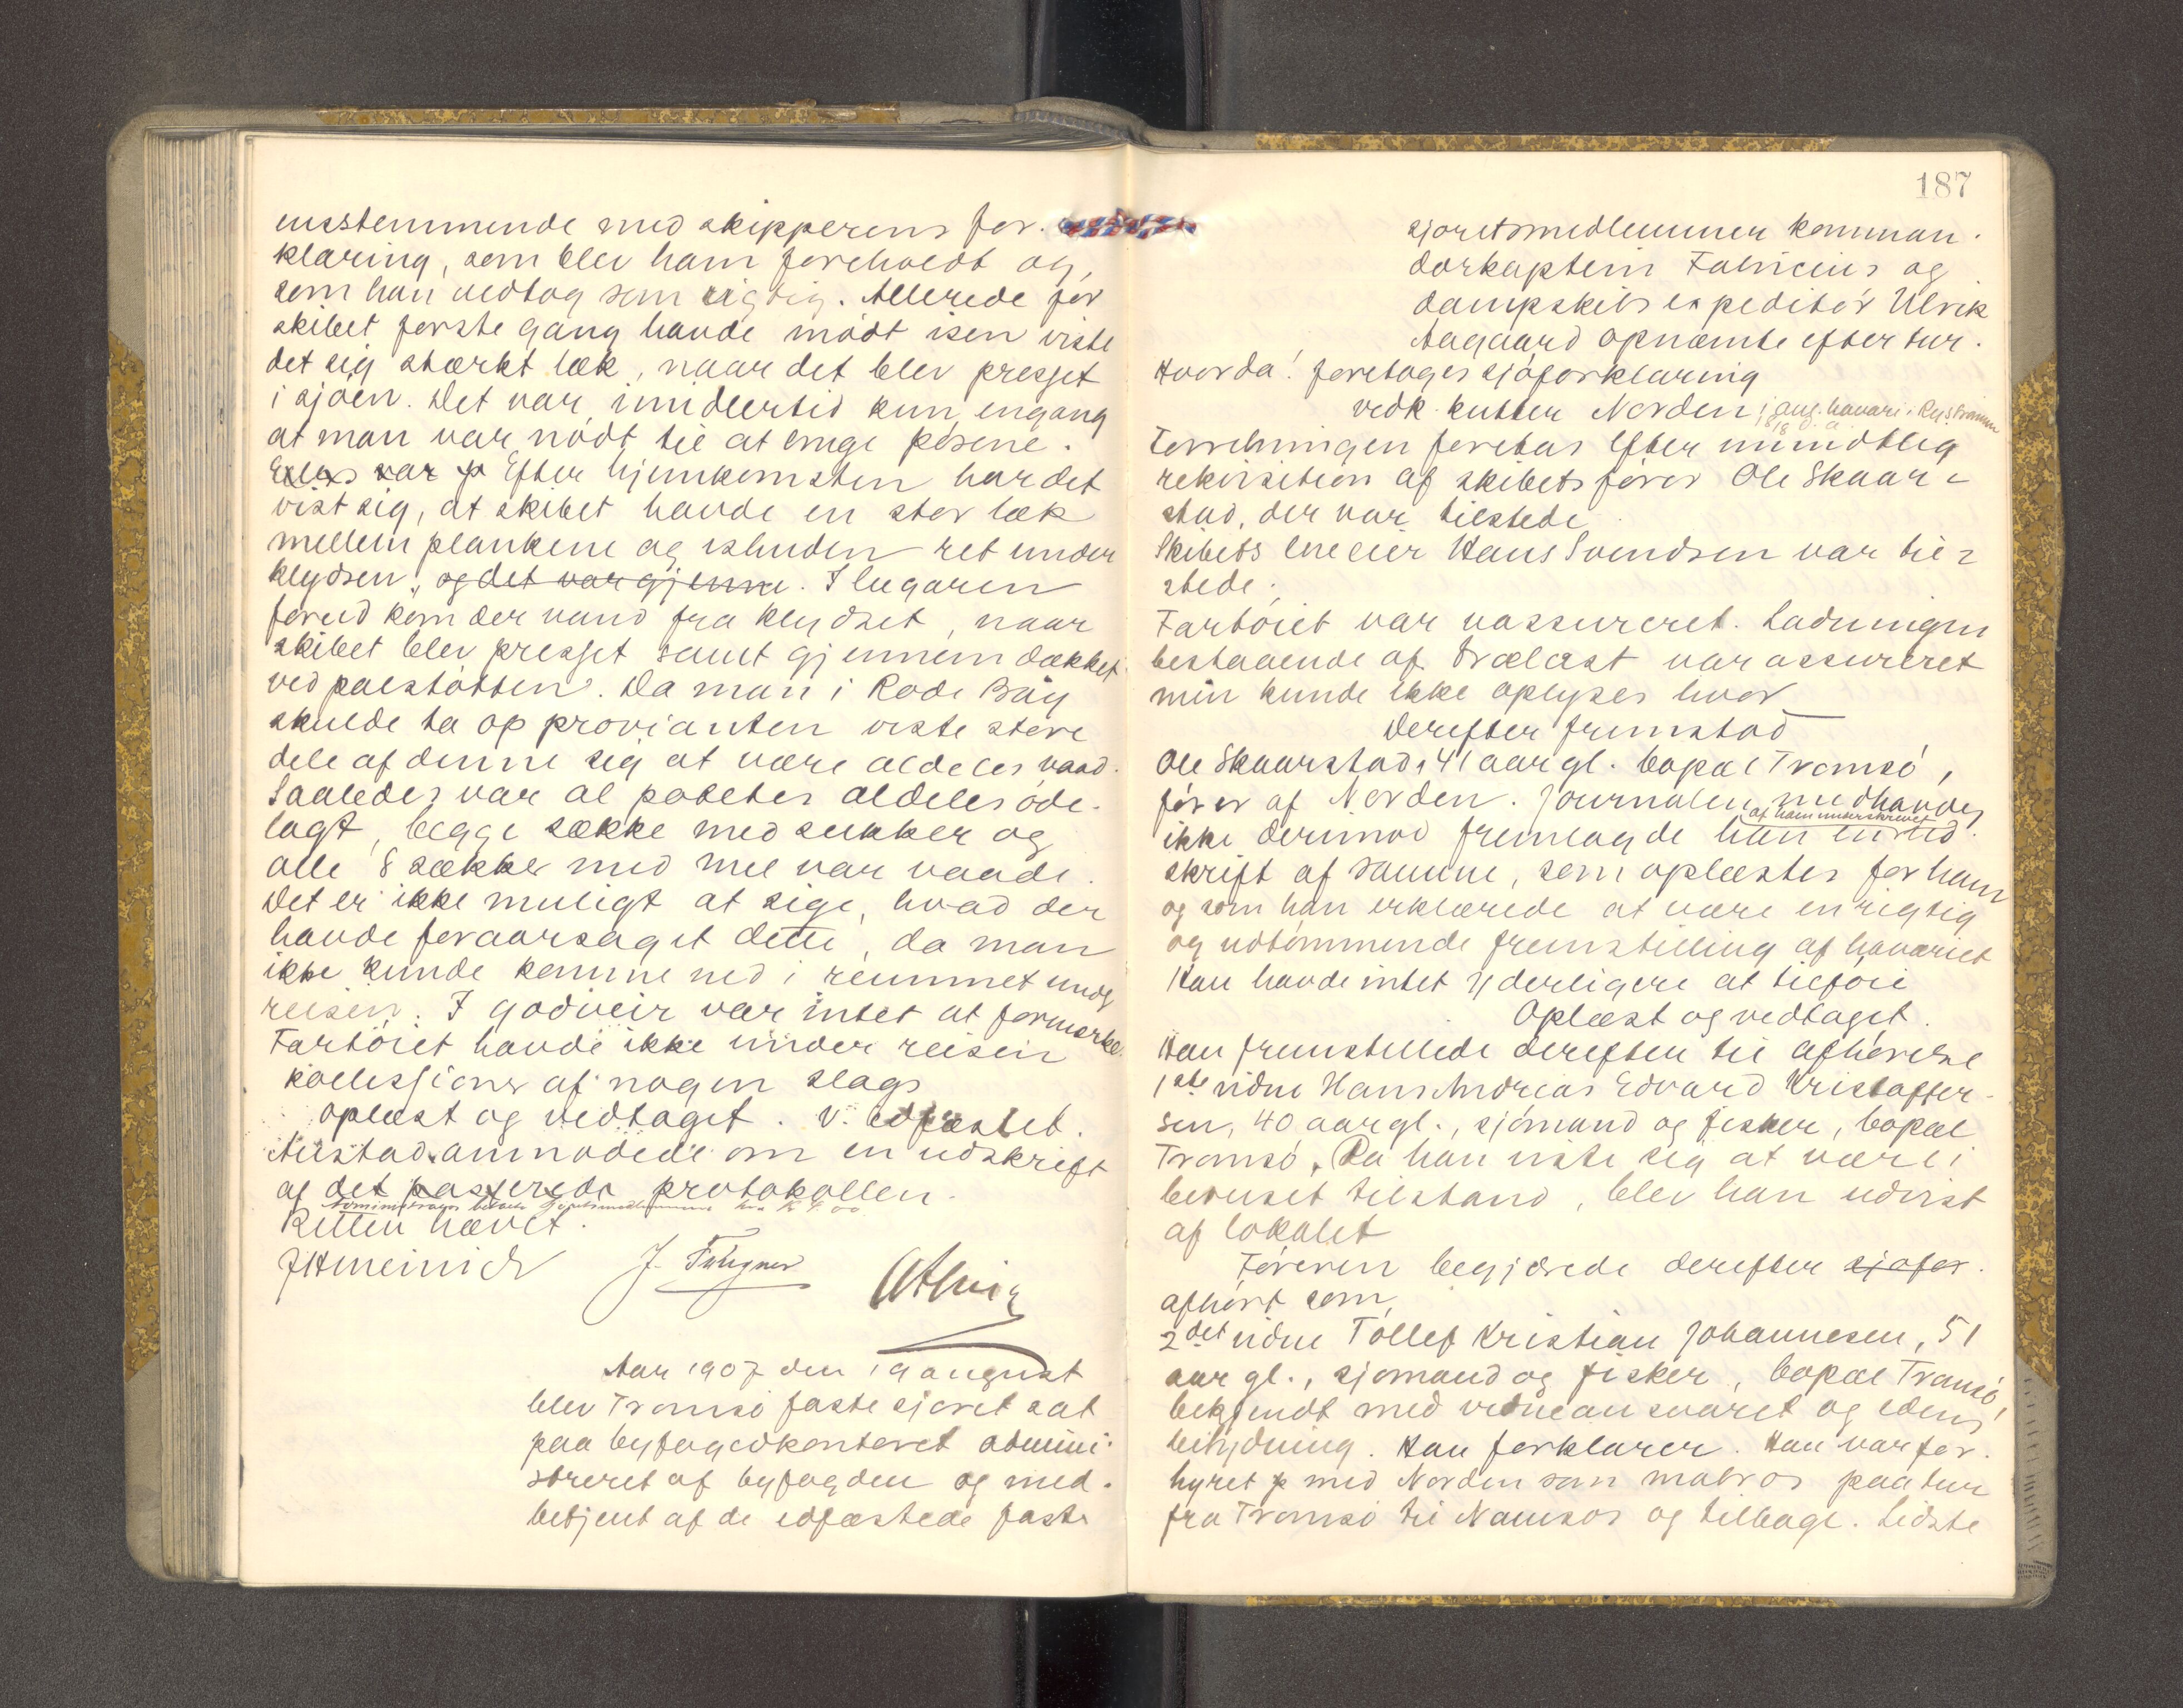 ensstemmende med skipperens for-
klaring, som blev ham foreholdt og,
som han vedtog som rigtig. Allerede før
skibet første gang havde mødt isen viste
det sig stærkt læk, naar det blev presset
i sjøen. Det var imidlertid kun engang
at man var nødt til at bruge pøsene.
var Efter hjemkomsten har det
vist sig, at skibet havde en stor læk
mellem plankene og ishuden ret under
klydsen, og det var gjenn. I lugaren
forud kom der vand fra klydset, naar
skibet blev presset samt gjennem dækket
ved palstøtten. Da man i Rode Bay
skulde ta op provianten viste store
dele af denne sig at være aldeles vaad.
Saaledes var al poteter aldeles øde-
lagt, begge sække med sukker og
alle 8 sækker med mel var vaade.
Det er ikke muligt at sige, hvad der
havde foraarsaget dette, da man
ikke kunde komme ned i rummet und
reisen. I godveir var intet at formerke.
Fartøiet havde ikke under reisen
kollissioner af nogen slags
Oplæst og vedtaget. V. edfæstet.
Austad anmodede om en udskrift
af det passerede protokollen.
Retten hævet.
Aar 1907 den 19 august
blev Tromsø faste sjøret sat
paa byfogedkontoret admini-
streret af byfogden og med-
betjent af de edfæstede faste
187
sjøretsmedlemmer komman-
dørkaptein Fabricius og
dampskibsexpeditør Ulrik
Aagaard opnævnte efter tur.
Hvorda! foretoges sjøforklaring
vedk. kutter Norden ang. havari i Rystrømmen
18/8 d. a.
Forretningen foretas efter mundtlig
rekvisition af skibets fører Ole Skaar-
stad, der var tilstede
Skibets eneeier Hans Svendsen var til-
stede.
Fartøiet var uassureret. Ladningen
bestaaende af trælast var assureret
men kunde ikke oplyses hvor
Derefter fremstod
Ole Skaarstad, 41 aar gl. bopæl Tromsø,
fører af Norden. Journalen medhavdes
ikke derimod fremlagde han en af ham underskrevet ud-
skrift af samme, som oplæstes for ham
og som han erklærede at være en rigtig
og udtømmende fremstilling af havariet
Han havde intet yderligere at tilføie
Oplæst og vedtaget.
Han fremstillede derefter til afhørelse
1ste vidne Hans Andreas Edvard Kristoffer-
sen, 40 aar gl., sjømand og fisker, bopæl
Tromsø. Da han viste sig at være i
beruset tilstand, blev han udvist
af lokalet
Føreren begjærede derefter sjøfor-
afhørt som,
2det vidne Tollef Kristian Johannesen, 51
aar gl., sjømand og fisker, bopæl Tromsø,
bekjendt med vidneansvaret og edens
betydning. Han forklarer. Han var for-
hyret p med Norden som matros paa tur
fra Tromsø til Namsos og tilbage. Sidste